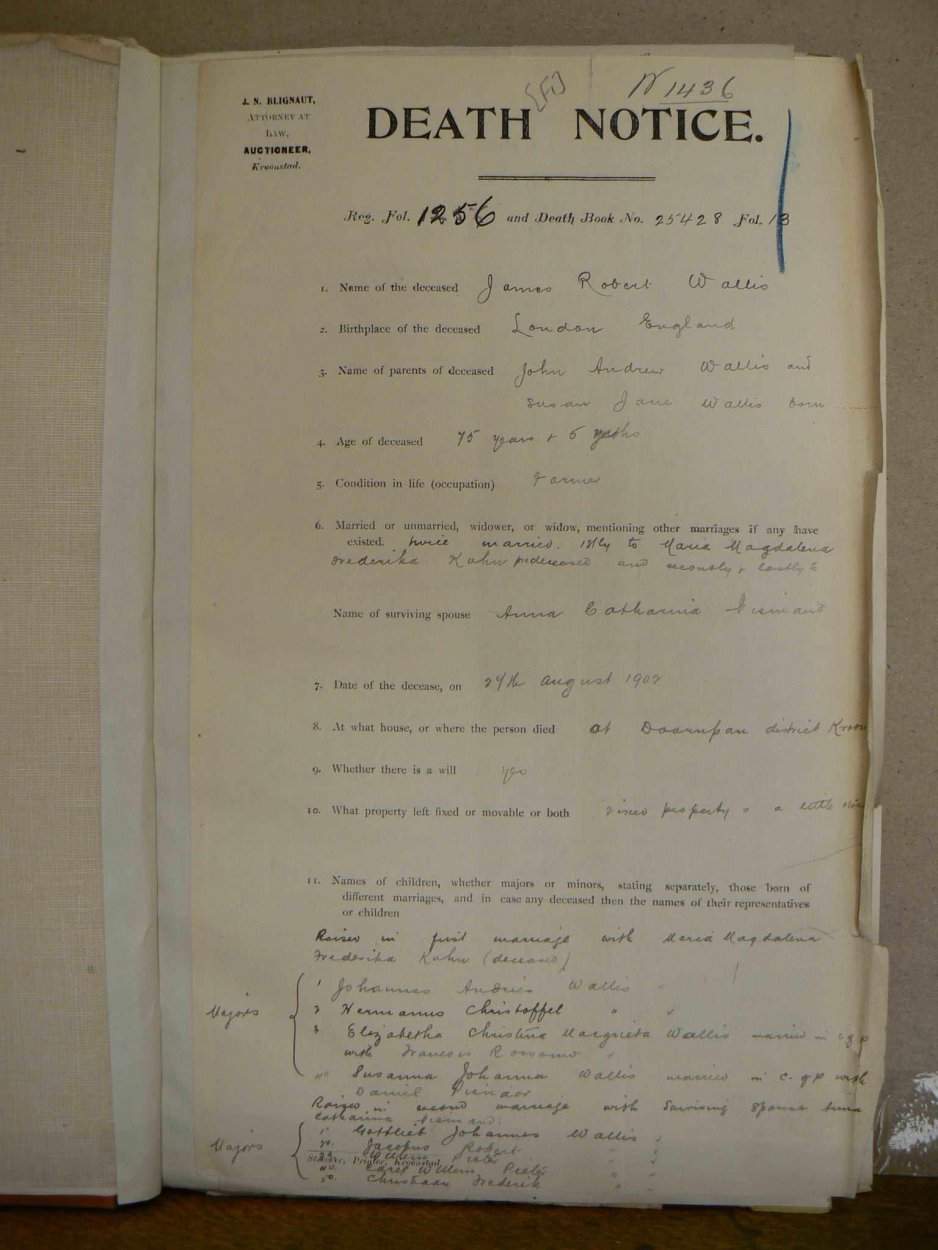 N 1436
J. N. BLIGNAUT,
ATTORNEY AT
LAW,
AUCTIONEER,
Kroonstad.
DEATH NOTICE.
Reg. Fol. 1256 and Death Book No. 25428 Fol. 13
1. Name of the deceased James Robert Wallis
2. Birthplace of the deceased London England
3. Name of parents of deceased John Andrew Wallis and
Susan Jane Wallis born
4. Age of deceased 75 years & 5
5. Condition in life (occupation) Farmer
6. Married or unmarried, widower, or widow, mentioning other marriages if any have
existed. twice married. 1stly to Maria Magdalena
Frederika Kuhn predeceased and secondly & lastly to
Name of surviving spouse Anna Catharina
7. Date of the decease, on 27th August 1902
8. At what house, or where the person died at Doornpan district
9. Whether there is a will yes
10. What property left fixed or movable or both fixed property & a little
11. Names of children, whether majors or minors, stating separately, those born of
different marriages, and in case any deceased then the names of their representatives
or children
Raised in first marriage with Maria Magdalena
Frederika Kuhn (deceased)
Majors
1 Johannes Andries Wallis
2 Hermanus Christoffel "
3 Elizabetha Christina Margrieta Wallis married in c of p
with Francois
4o Susanna Johanna Wallis married in c. of p with
Daniel
Raised in second marriage with Surviving Spouse Anna
Catharina
Majors
1o Gottlieb Johannes Wallis
2o. Jacobus Robert "
3o. Willem Pieter "
Printer, Kroonstad.
4o. Carel Willem Pieter "
5o. Christiaan Frederik "